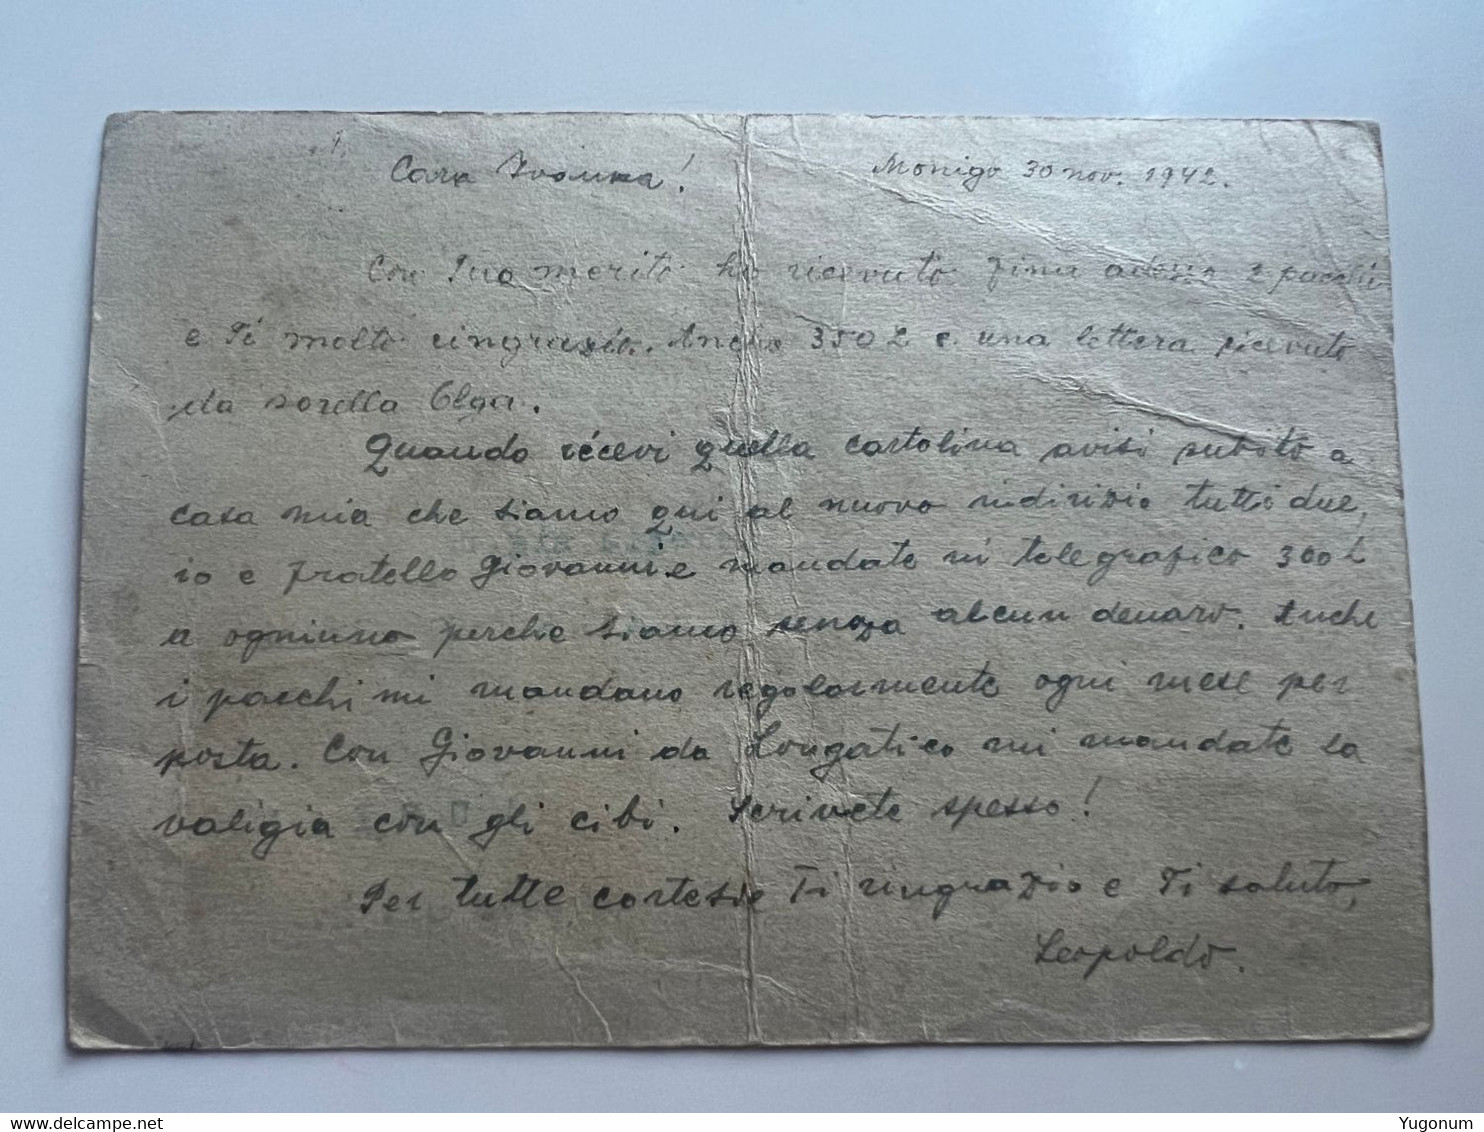 Cara Ivanka! Monigo 30 nov. 1942.
Con Tuo merito ho ricevuto fina adesso 2 pacchi
e Ti molto ringrazio. Anche 350 L e una lettera ricevuto
da sorella Olga.
Quando ricevi quella cartolina avisi subito a
casa mia che siamo qui al nuovo indirizio tutti due,
io e fratello Giovanni e mandate ni telegrafico 300 L
a ogniuno perche siamo senza alcun denaro. Anche
i pacchi mi mandano regolarmente ogni mese per
posta. Con Giovanni da Longatico mi mandate la
valigia con gli cibi. Scrivete spesso!
Per tutte cortesie Ti ringrazio e Ti saluto,
Leopoldo.
Yugonum